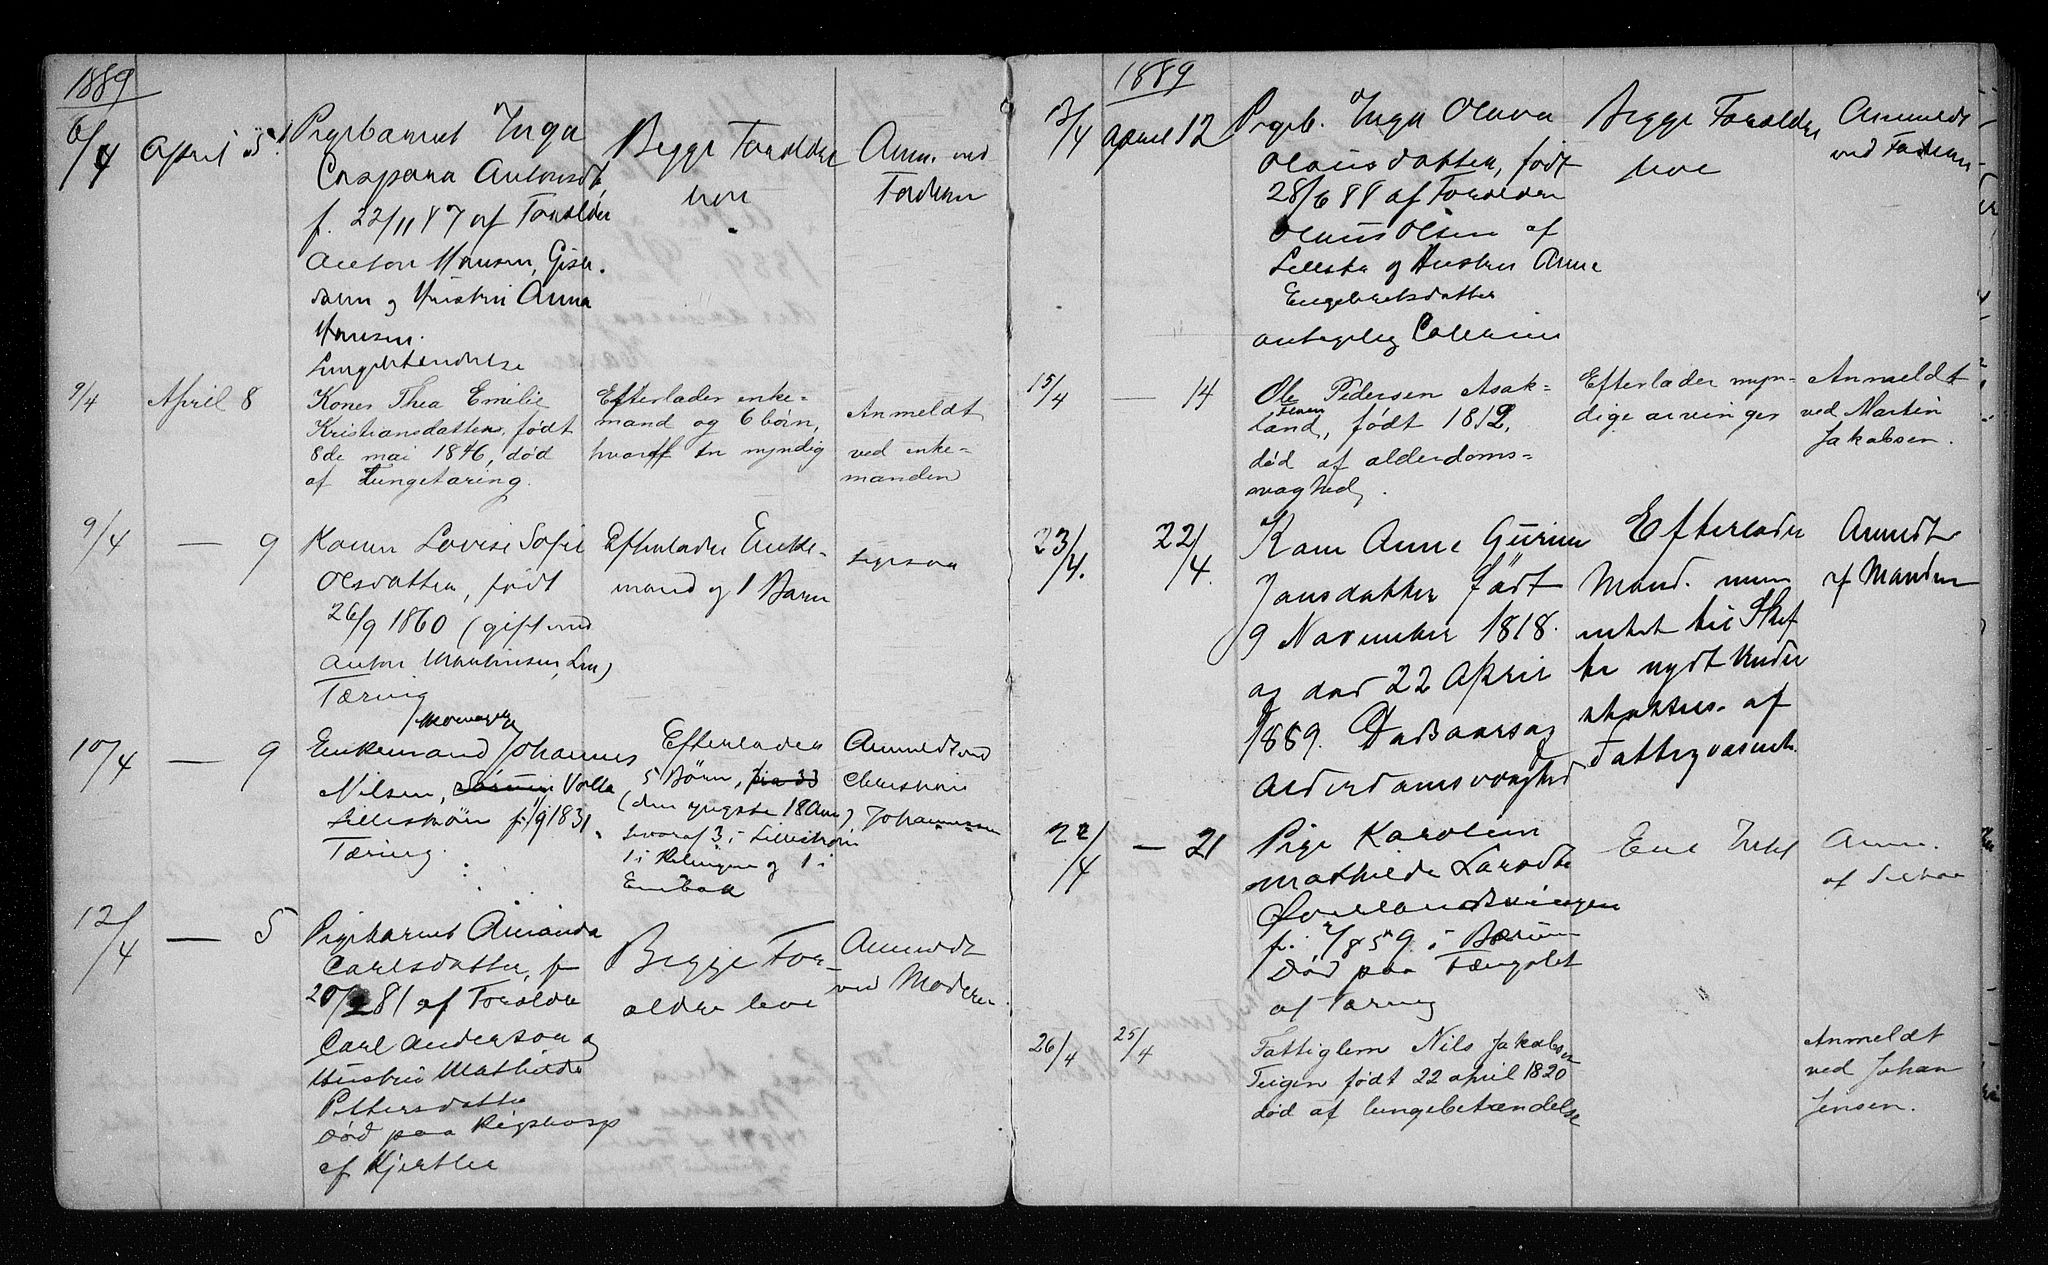 1889
6/4 April 5. Pigebarnet Inga Begge Forældre Anm. ved
Caspara Antonsdt, leve Faderen
f. 22/11 87 af Forældre
Anton Hansen,
og Hustru Anna
Hansen.
Lungebetændelse
9/4 April 8 Konen Thea Emilie Efterlader enke= Anmeldt
Kristiansdatter, født mand og 6 börn, ved enke=
8de mai 1846, död hvoraf en myndig manden
af Lungetæring.
9/4 — 9 Konen Lovise Sofie Efterlader Enke-
Olsdatter, født mand og 1 Barn
26/9 1860 (gift med
Anton Martinsen,
Tæring
10/4 — 9 Enkemand Johannes Efterlader Anmeldt ved
Nilsen, Volla 5 Børn, Christian
Lilleström f. 1831. (den yngste 18 Aar) Johannessen
Tæring. hvoraf 3 i Lilleström
1 i Relingen og 1 i
Enebak
12/4 — 5 Pigebarnet Amanda Begge For- Anmeldt
Carlsdatter, f. ældre leve ved Moderen.
20/2 81 af Forældre
Carl Anderson og
Hustru Mathilde
Pettersdatter
Död paa Rigshosp
af Kjertler
1889
13/4 April 12 Pigeb. Inga Olava Begge Forældre Anmeldt
Olausdatter, født leve ved Faderen
28/6 88 af Forældre
Olaus Olsen af
og Hustru Anne
Engebretsdatter
antagelig
15/4 — 14 Ole Pedersen Asak= Efterlader myn= Anmeldt
land, født 1812, dige arvinger ved Martin
död af alderdoms= Jakobsen.
svaghed.
23/4. 22/4. Kone Anne Gurine Efterlader Anmdt
Jansdatter Født Mand. men af Manden
9 November 1818. intet til Skif
og död 22 April te nydt Under
1889. Dødsaarsag støttelse af
Alderdomsvaghed Fattigvæsenet.
22/4 — 21 Pige Karoline Anm.
Mathilde Larsdt
f. i Bærum
Död paa Fængslet
af Tæring
26/4 25/4 Fattiglem Nils Jakobsen Anmeldt
Teigen født 22 april 1820 ved Johan
död af lungebetændelse Jensen.